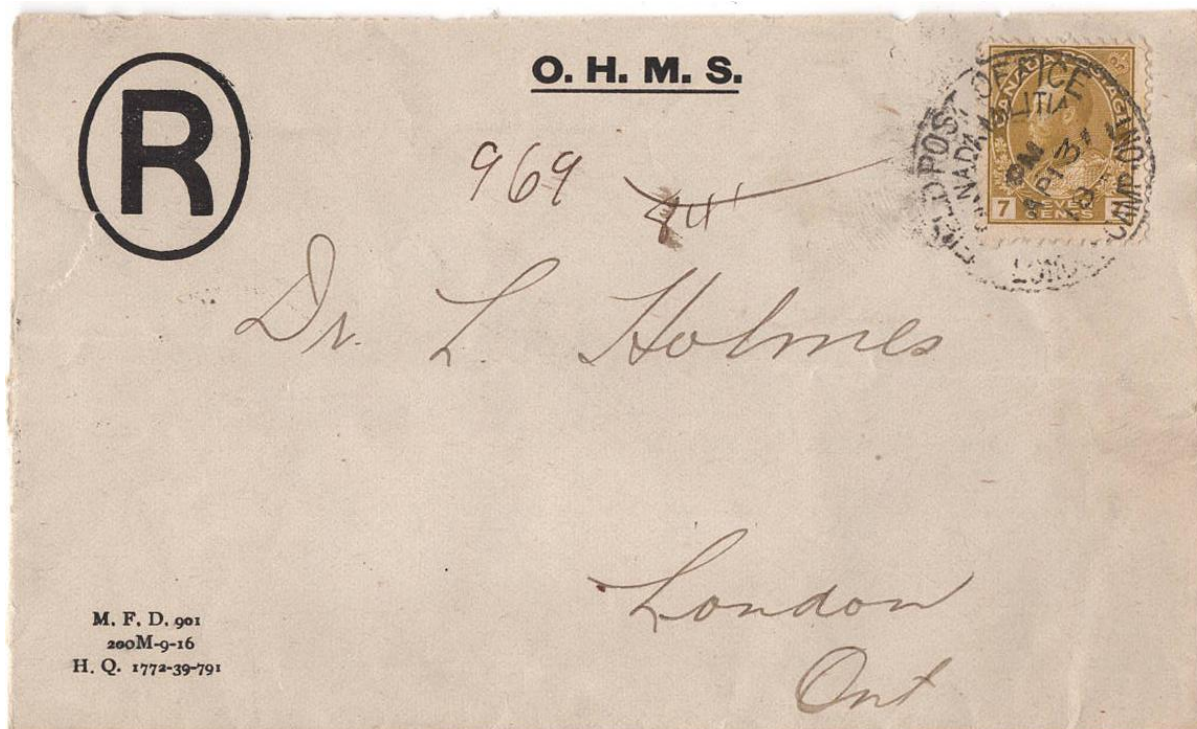 R
O. H. M. S.
969 84
FIELD POST OFFICE
CANADA MILITIA
PM
13
LONDON CAMP ONT
CANADA POSTAGE
7 SEVEN
CENTS
Dr. L. Holmes
London
Ont
M. F. D. 901
200M-9-16
H. Q. 1772-39-791